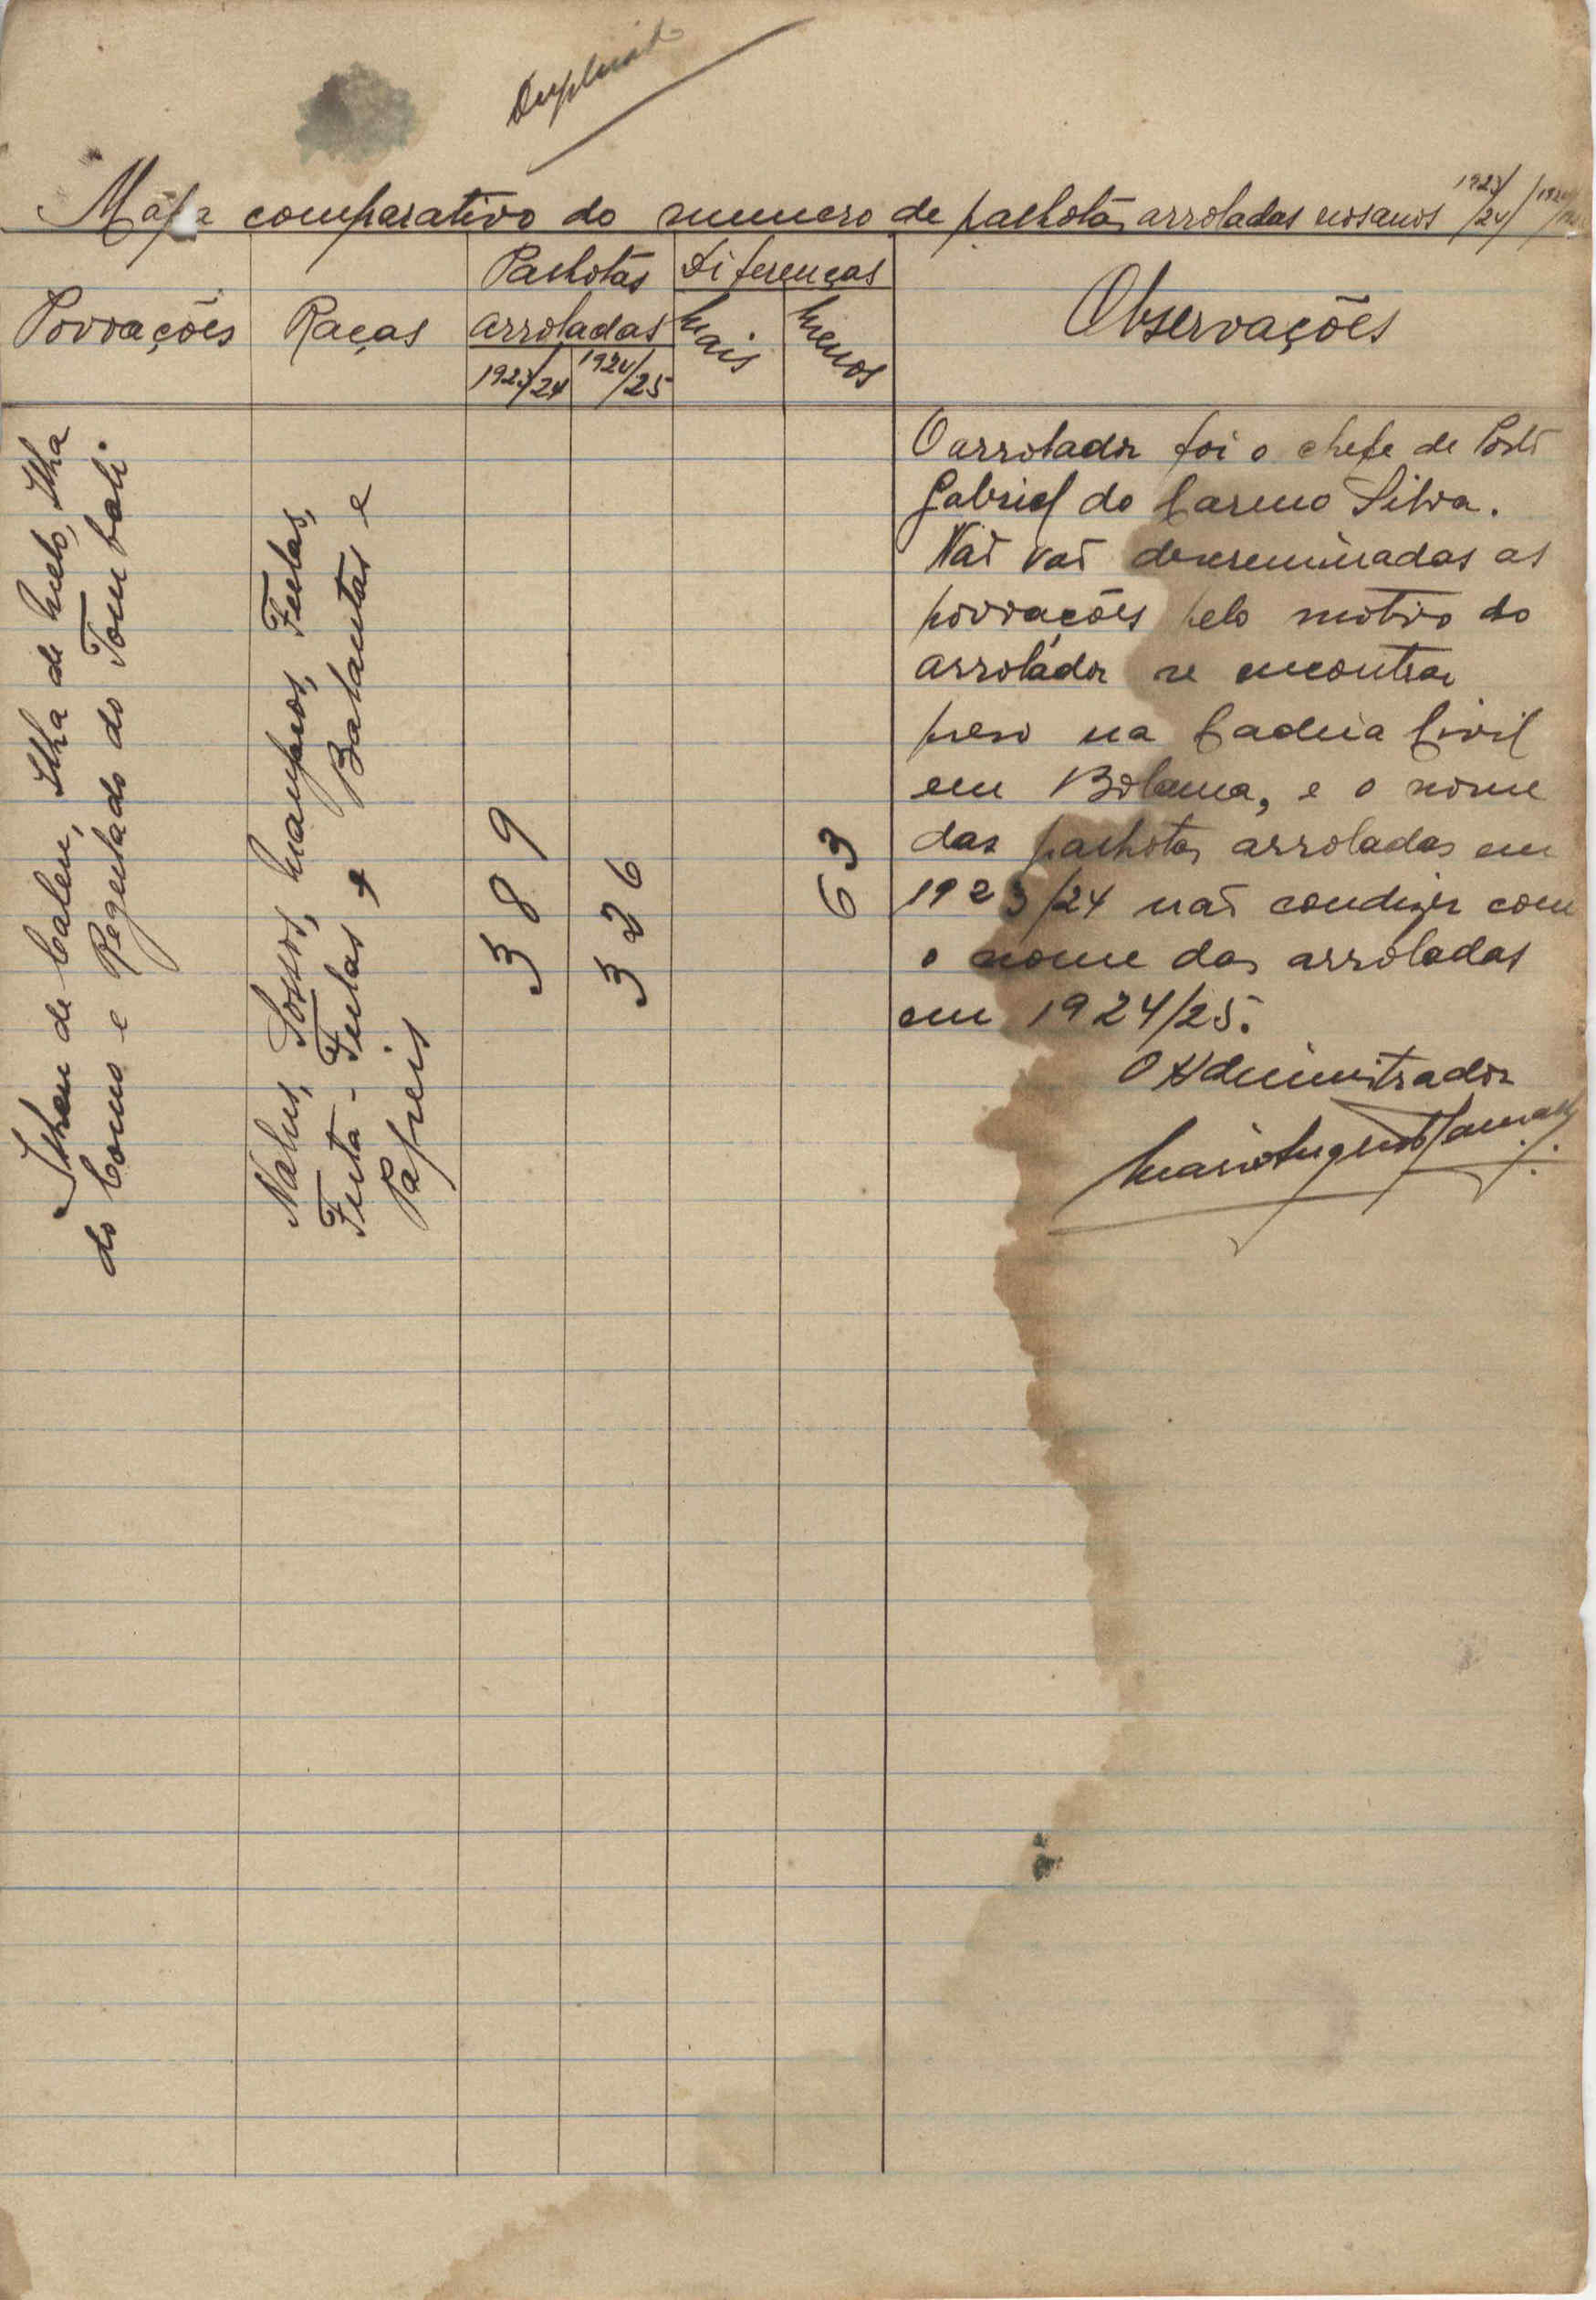 Duplicado
Mapa comparativo do numero de palhotas arroladas nos anos 1923/24 1924/
Povoações
Raças
Palhotas
arroladas
1923/24
1924/25
Diferenças
Mais
Menos
Observações
Ilheu de Calen, Ilha de Melo, Ilha
do Como e Regulado do Tombali.
Nalus, Sossos, Manjacos, Fulas,
Futa-Fulas, Balantas e
Papeis
389
326
63
O arrolador foi o chefe de Posto
Gabriel do Carmo Silva.
Não vão descreminadas as
povoações pelo motivo do
arrolador se encontrar
preso na Cadeia Civil
em Bolama, e o nome
das palhotas arroladas em
1923/24 não condizer com
o nome das arroladas
em 1924/25.
O Administrador
Mario